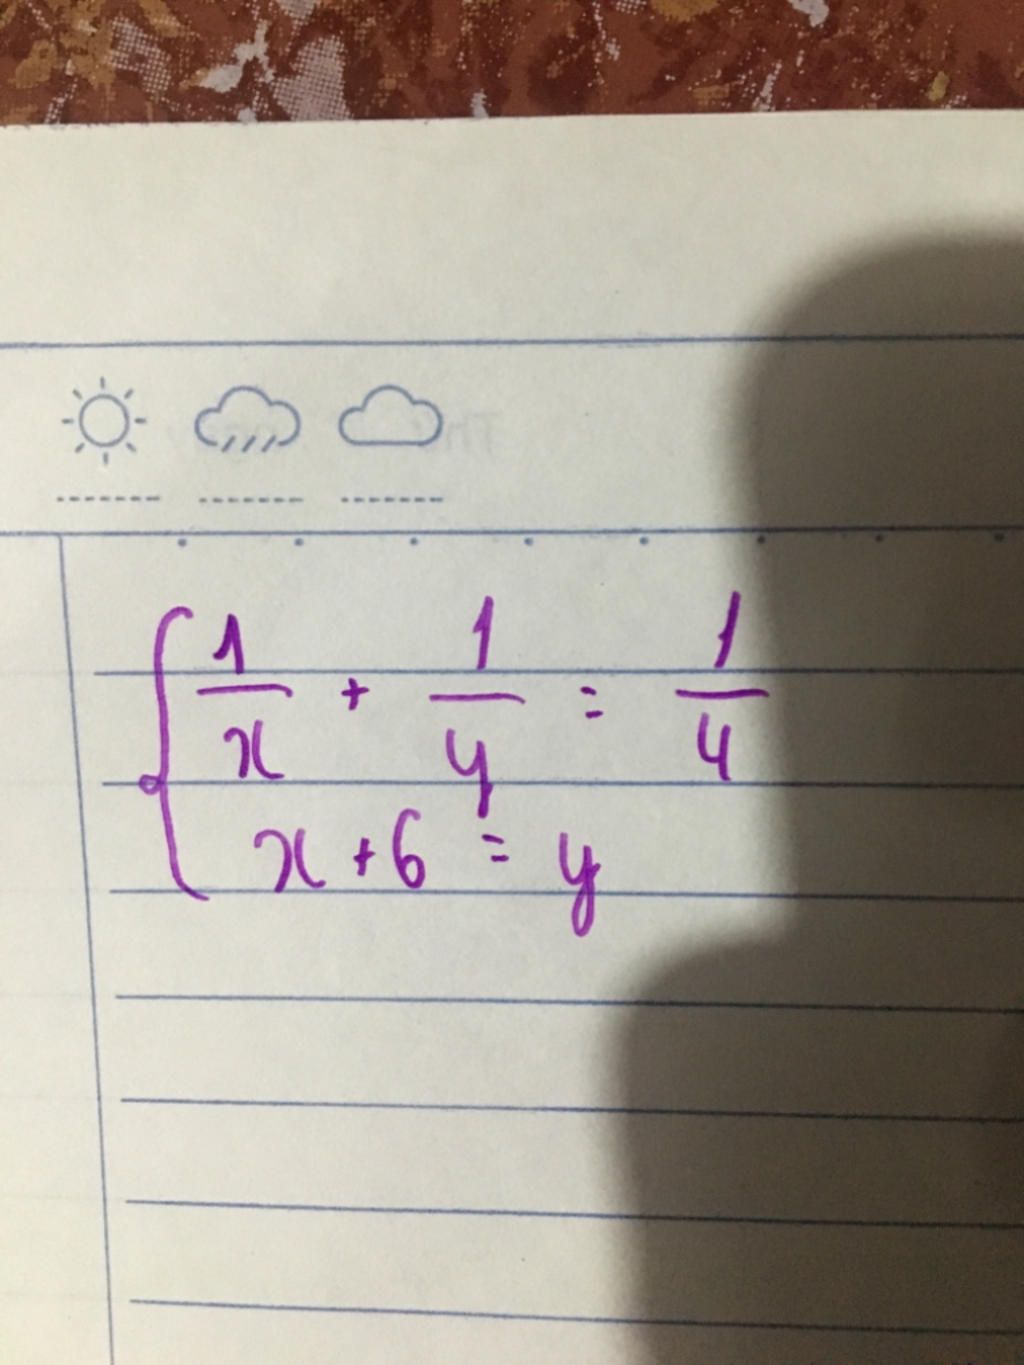 1/x + 1/y = 1/4
x + 6 = y